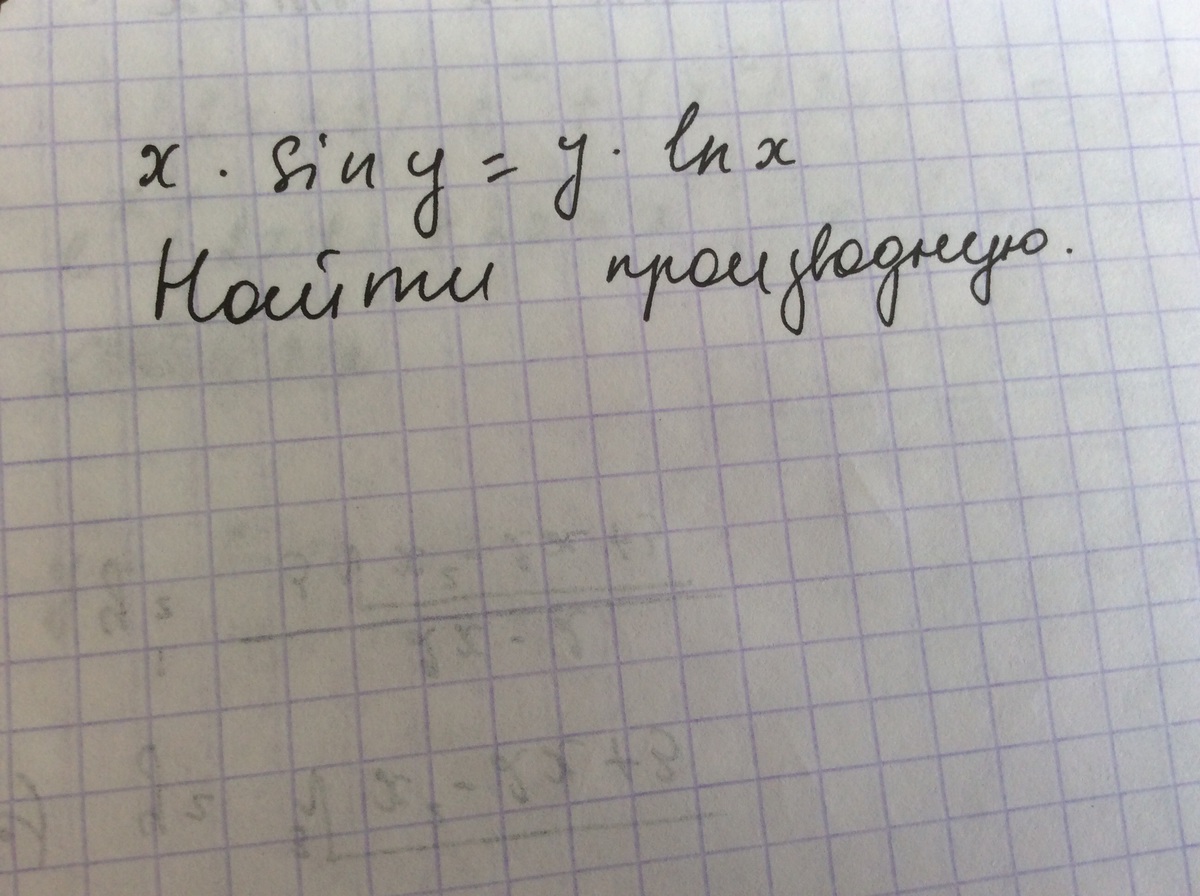 x · sin y = y · ln x
Найти производную.